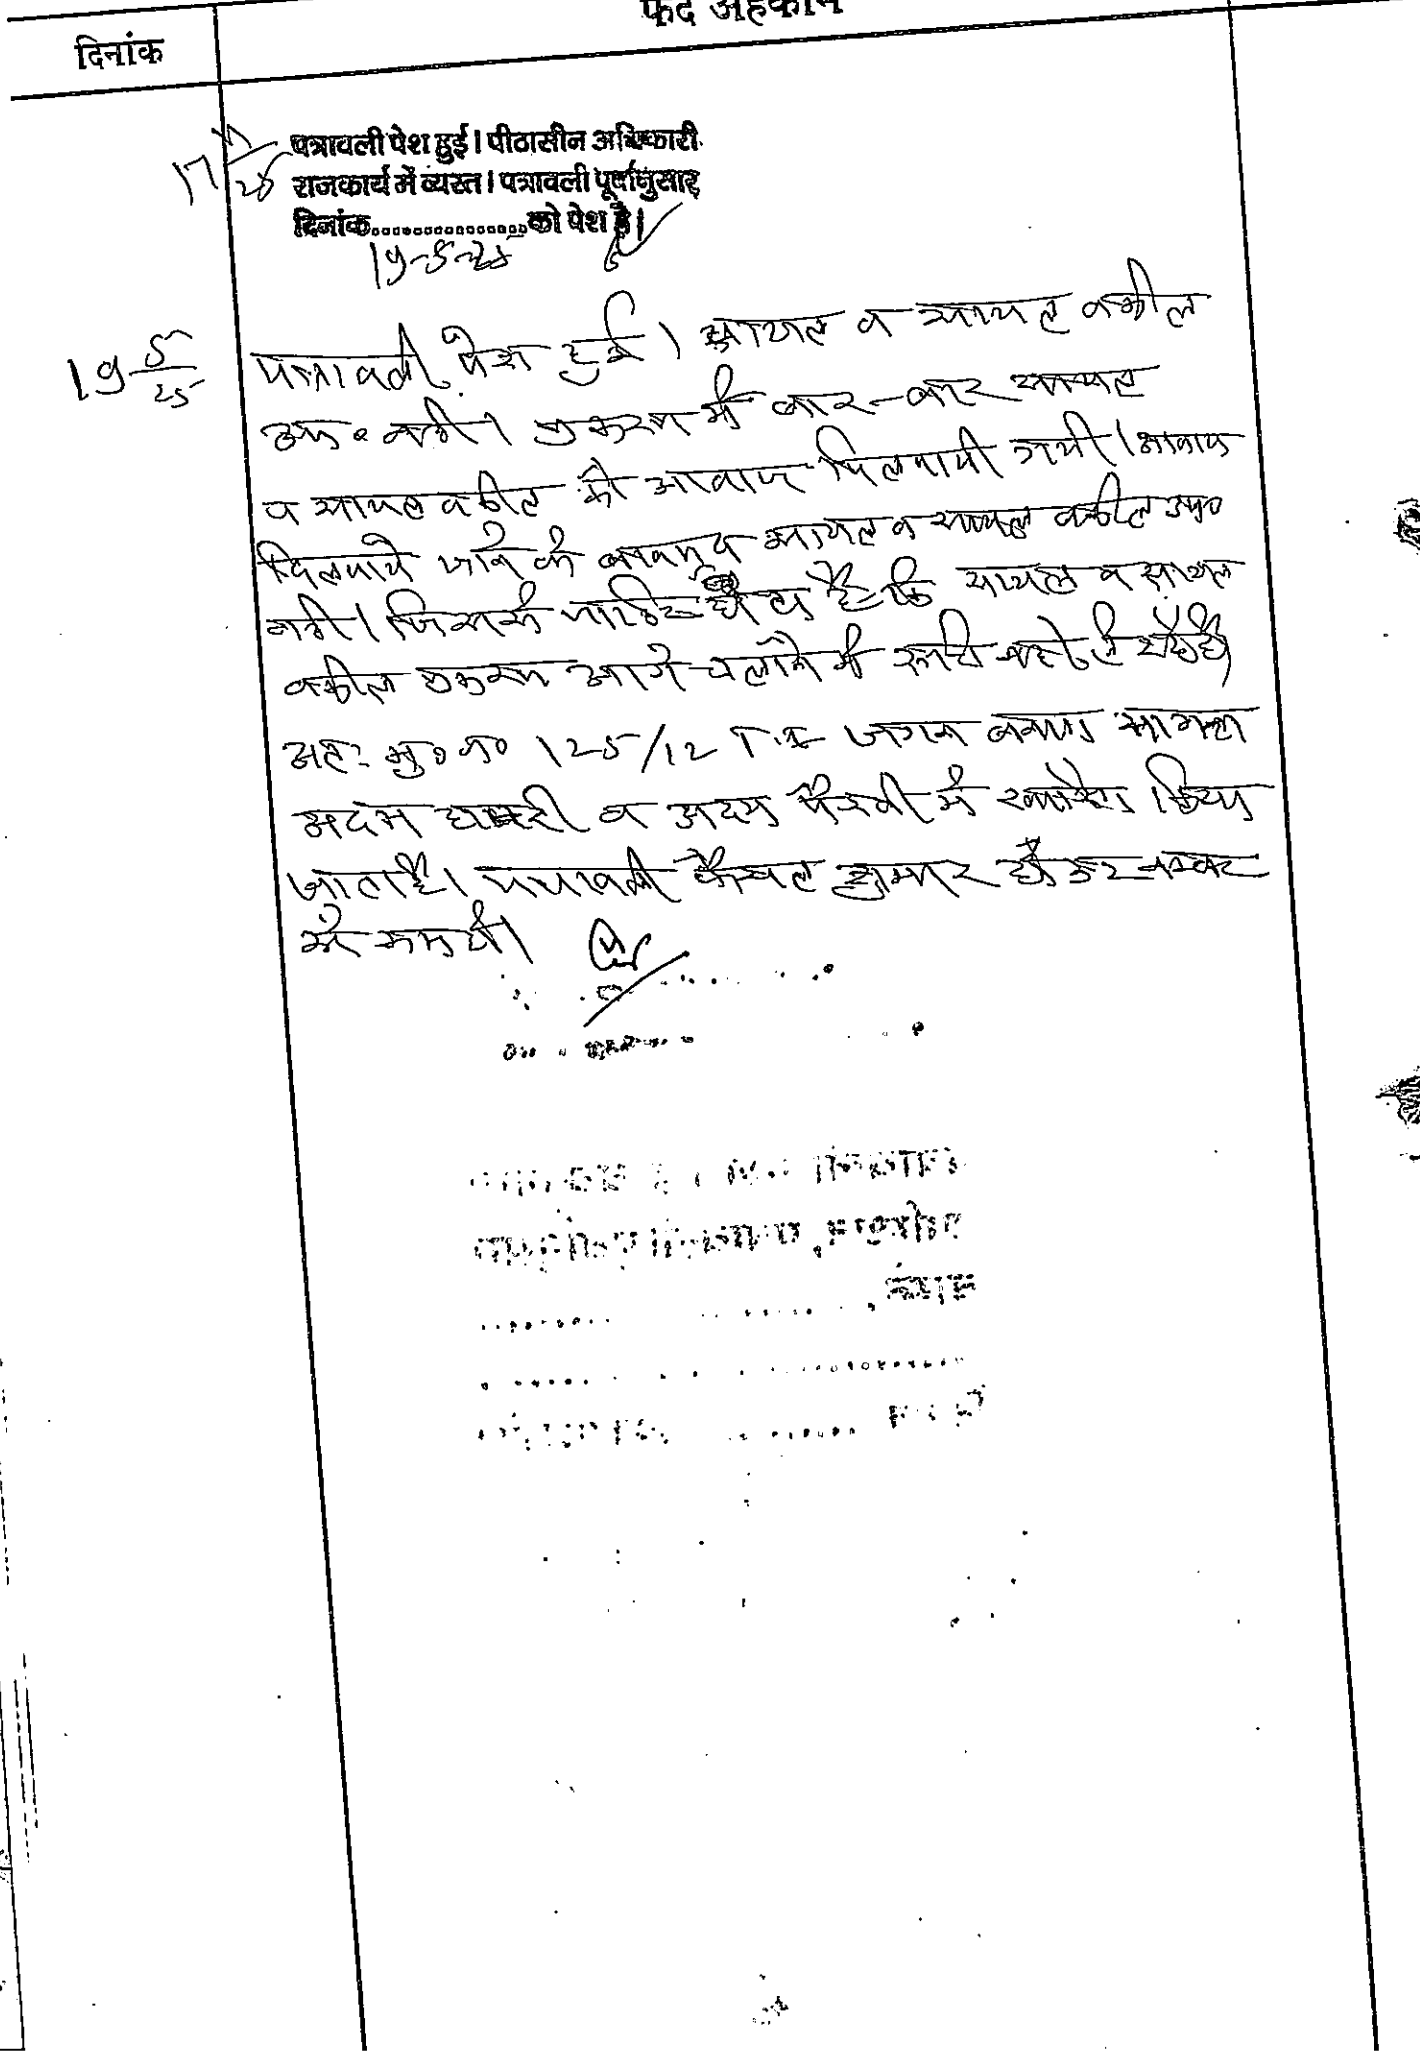 फर्द अहकाम
दिनांक
पत्रावली पेश हुई। पीठासीन अधिकारी
राजकार्य में व्यस्त। पत्रावली पूर्वानुसार
दिनांक..................को पेश हो।
19-5-25
19 5/25 पत्रावली पेश हुई। सायल व सायल वकील
उप० नही। प्रकरण में बार-बार सायल
व सायल वकील को आवाज दिलवायी गयी। आवाज
दिलवाये जाने के बावजूद सायल व सायल वकील उप०
नही। जिससे जाहिर होता है कि सायल व सायल
वकील प्रकरण आगे चलाने में रूचि नही ले रहे है।
अतः मु० न० 125/12 T.I. जगन बनाम
अदम हाजरी व अदम पैरवी में खारिज किया
जाता है। पत्रावली फैसल शुमार होकर नम्बर
से कम हो।